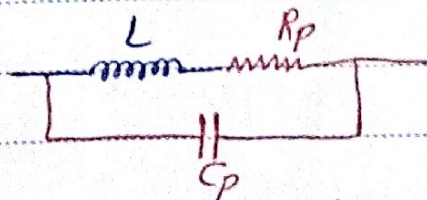 L Rp
Cp